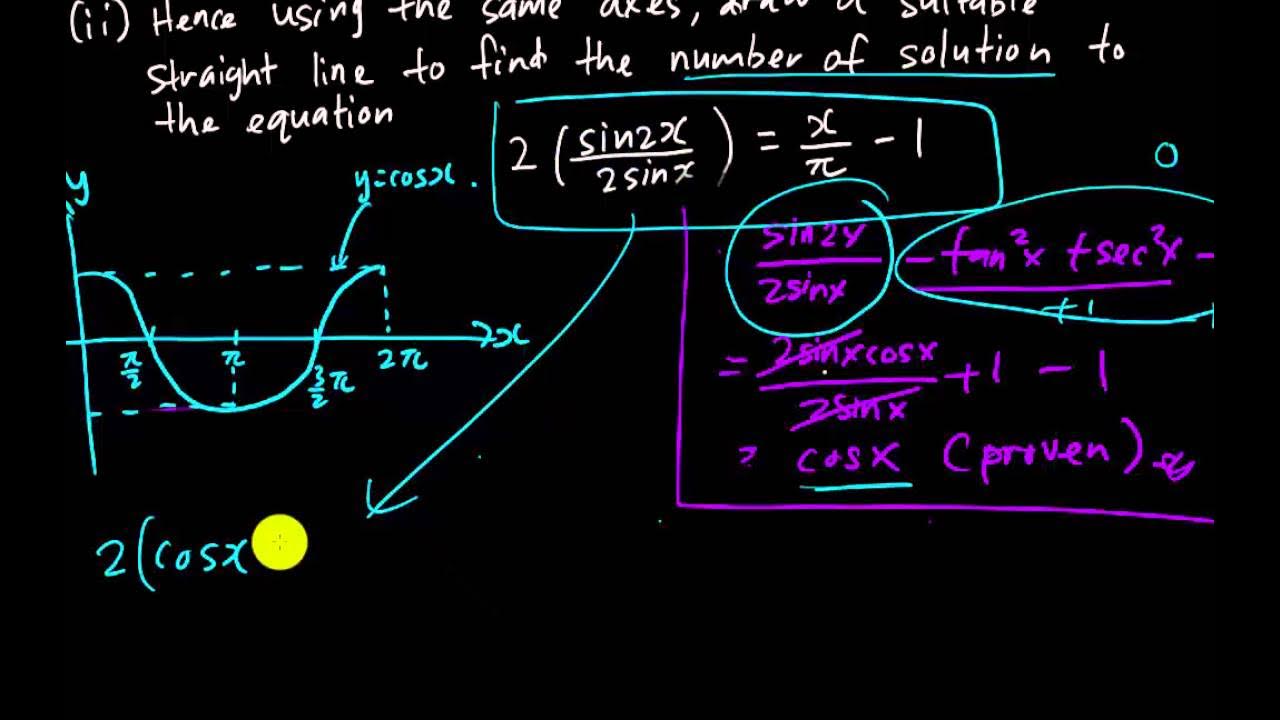 (ii) Hence using the same axes, draw a suitable
straight line to find the number of solution to
the equation
2 ( sin2x / 2sinx ) = x/π - 1
0
y
y=cosx.
sin2x / 2sinx - tan²x + sec²x -
+1
π/2
π
3/2 π
2π
x
= 2sinxcosx / 2sinx + 1 - 1
= cosx (proven)
2(cosx